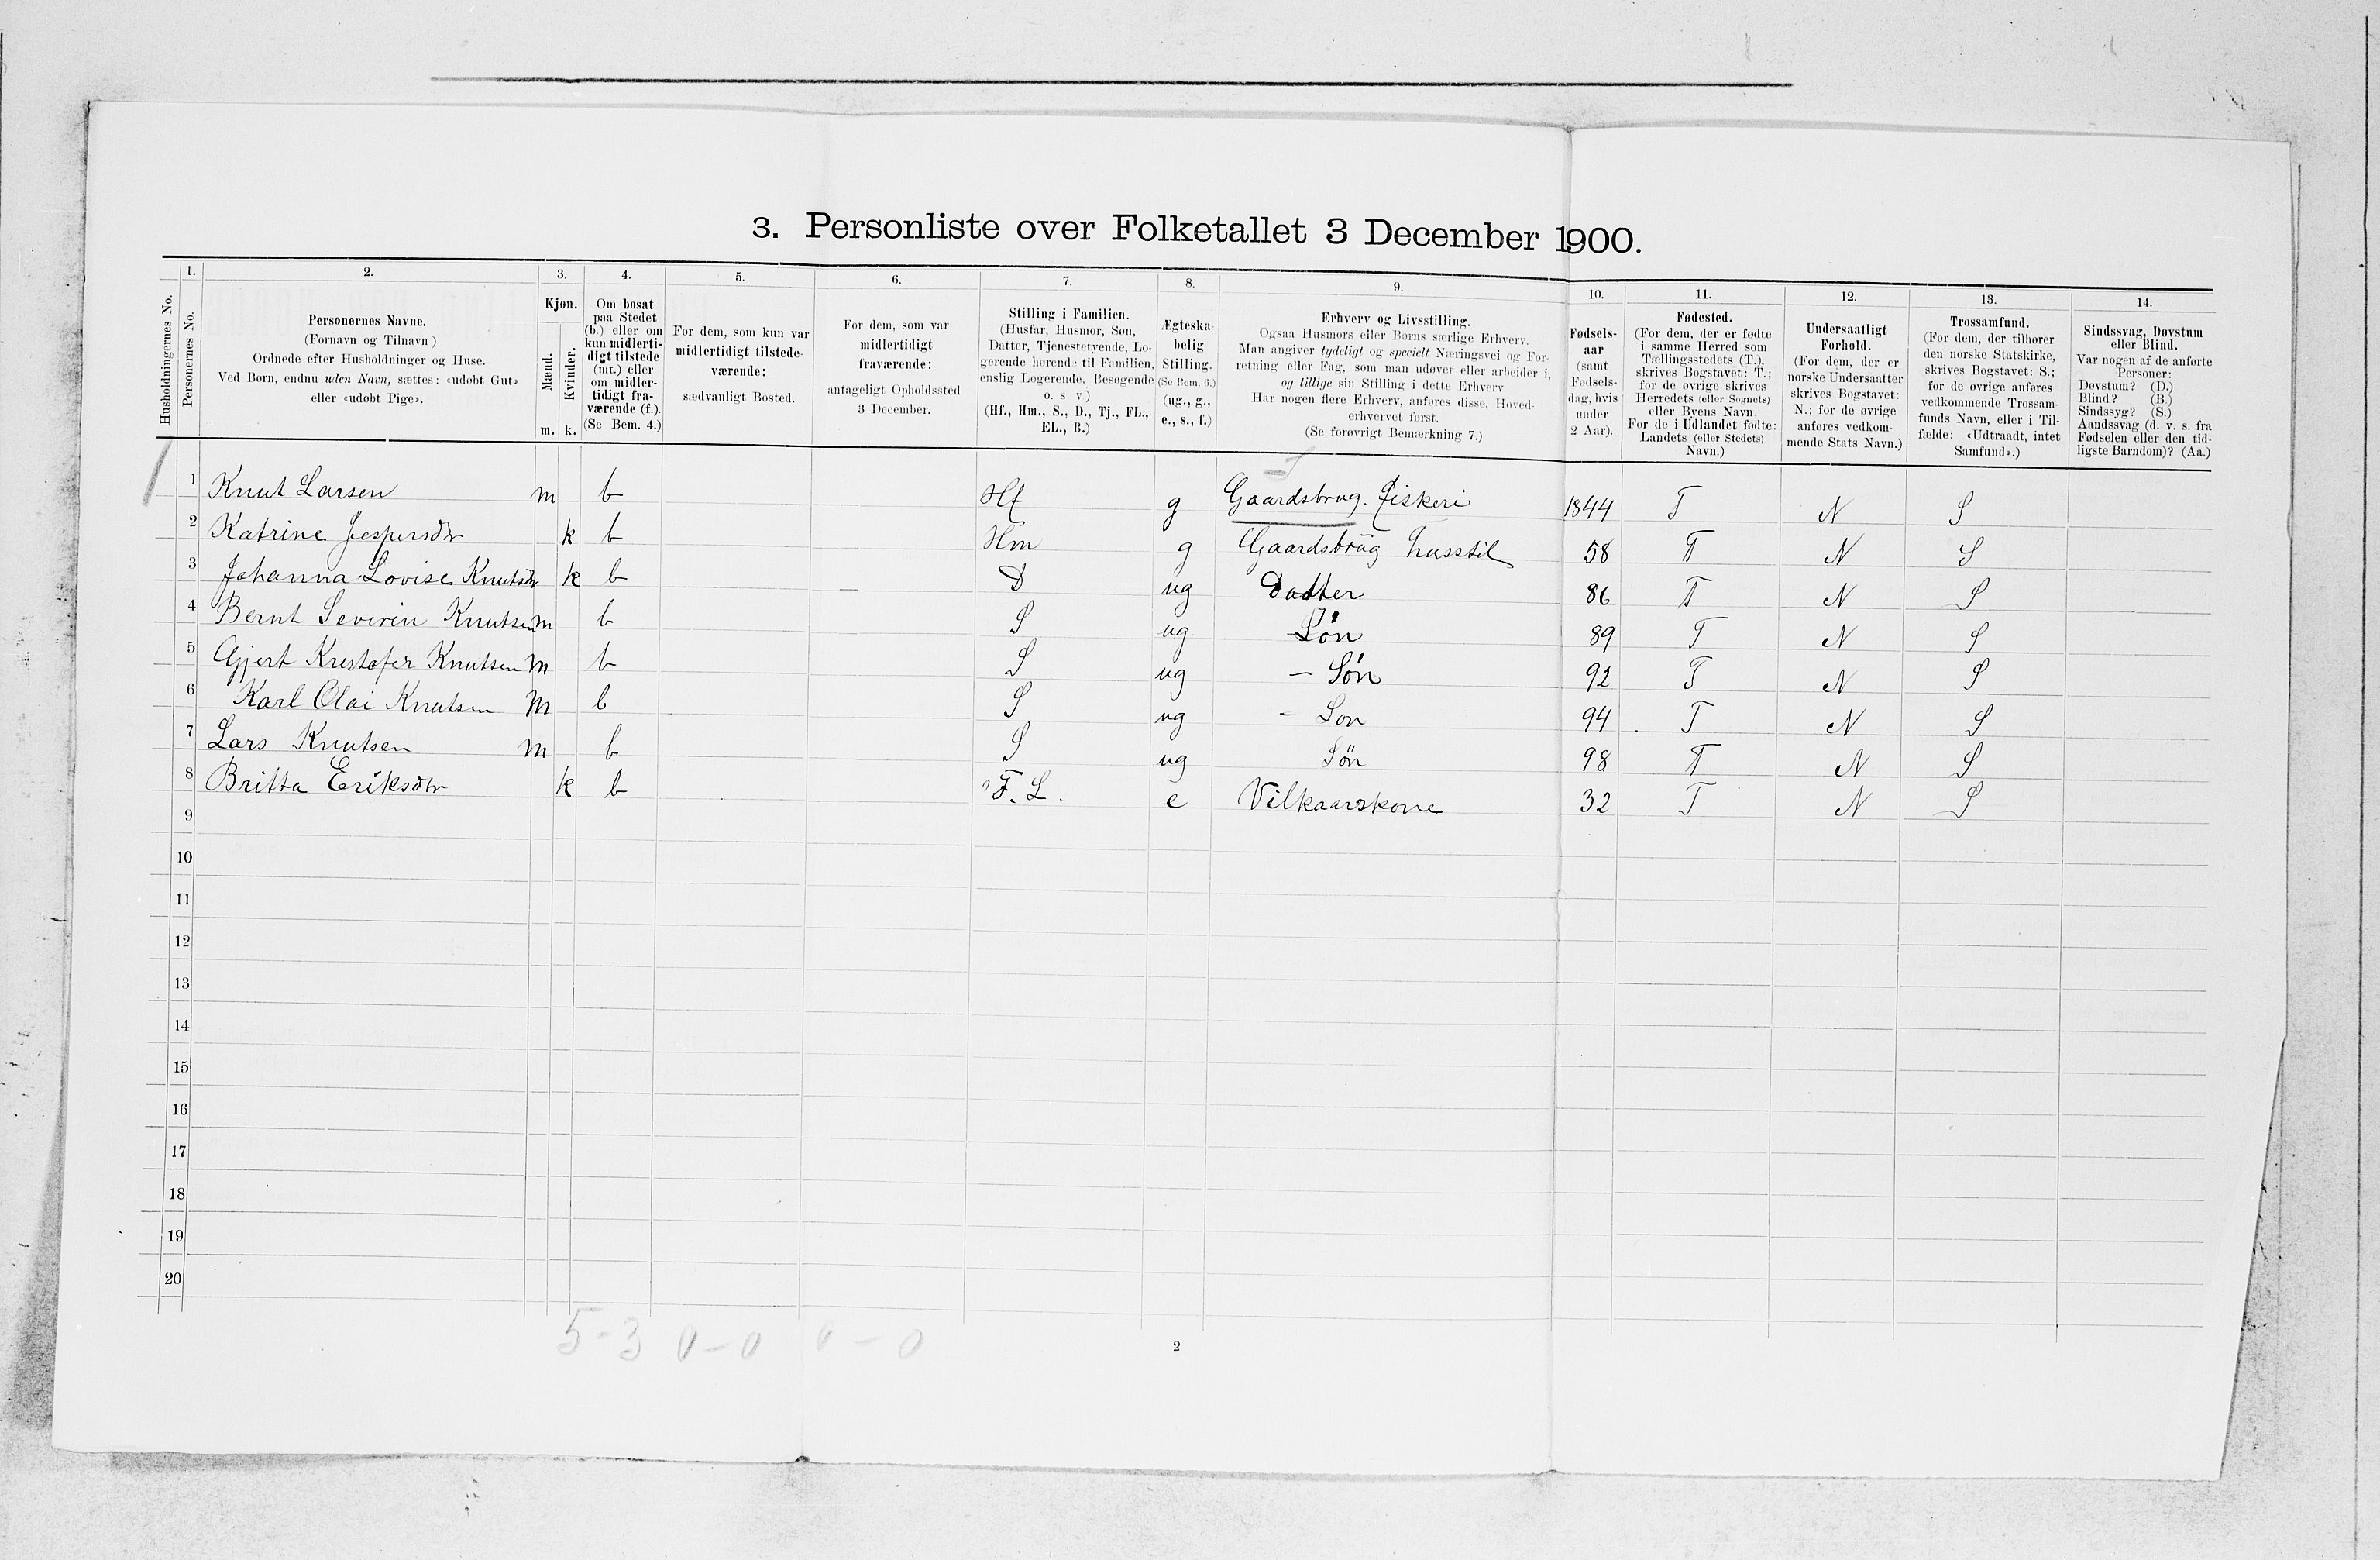 3. Personliste over Folketallet 3 December 1900.
1. 2. 3. 4. 5. 6. 7. 8. 9. 10. 11. 12. 13. 14.
Husholdningernes No.
Personernes No.
Personernes Navne.
(Fornavn og Tilnavn)
Ordnede efter Husholdninger og Huse.
Ved Børn, endnu uden Navn, sættes: «udøbt Gut»
eller «udøbt Pige».
Kjøn.
Mænd.
Kvinder.
m. k.
Om bosat
paa Stedet
(b.) eller om
kun midlerti-
digt tilstede
(mt.) eller
om midler-
tidigt fra-
værende (f.).
(Se Bem. 4.)
For dem, som kun var
midlertidigt tilstede-
værende:
sædvanligt Bosted.
For dem, som var
midlertidigt
fraværende:
antageligt Opholdssted
3 December.
Stilling i Familien.
(Husfar, Husmor, Søn,
Datter, Tjenestetyende, Lo-
gerende hørende til Familien,
enslig Logerende, Besøgende
o. s v)
(Hf., Hm., S., D., Tj., FL.,
EL., B.)
Ægteska-
belig
Stilling.
(Se Bem. 6.)
(ug., g.,
e., s., f.)
Erhverv og Livsstilling.
Ogsaa Husmors eller Børns særlige Erhverv.
Man angiver tydeligt og specielt Næringsvei og For-
retning eller Fag, som man udøver eller arbeider i,
og tillige sin Stilling i dette Erhverv
Har nogen flere Erhverv, anføres disse, Hoved-
erhvervet først.
(Se forøvrigt Bemærkning 7.)
Fødsels-
aar
(samt
Fødsels-
dag, hvis
under
2 Aar).
Fødested.
(For dem, der er fødte
i samme Herred som
Tællingsstedets (T.),
skrives Bogstavet: T.;
for de øvrige skrives
Herredets (eller Sognets)
eller Byens Navn.
For de i Udlandet fødte:
Landets (eller Stedets)
Navn.)
Undersaatligt
Forhold.
(For dem, der er
norske Undersaatter
skrives Bogstavet:
N.; for de øvrige
anføres vedkom-
mende Stats Navn.)
Trossamfund.
(For dem, der tilhører
den norske Statskirke,
skrives Bogstavet: S.;
for de øvrige anføres
vedkommende Trossam-
funds Navn, eller i Til-
fælde: «Udtraadt, intet
Samfund».)
Sindssvag, Døvstum
eller Blind.
Var nogen af de anførte
Personer:
Døvstum? (D.)
Blind? (B.)
Sindssyg? (S.)
Aandssvag (d. v. s. fra
Fødselen eller den tid-
ligste Barndom)? (Aa.)
1 Knut Larsen m b Hf g Gaardsbrug. Fiskeri 1844 T N S
2 Katrine Jespersdtr k b Hm g Gaardsbrug husstil 58 T N S
3 Johanna Lovise Knutsdtr k b D ug Datter 86 T N S
4 Bernt Severin Knutsen m b S ug Søn 89 T N S
5 Gjert Kristofer Knutsen m b S ug – Søn 92 T N S
6 Karl Olai Knutsen m b S ug – Son 94 T N S
7 Lars Knutsen m b S ug Søn 98 T N S
8 Britta Eriksdtr k b F. L. e Vilkaarskone 32 T N S
9
10
11
12
13
14
15
16
17
18
19
20
5-3 0-0 0-0
2